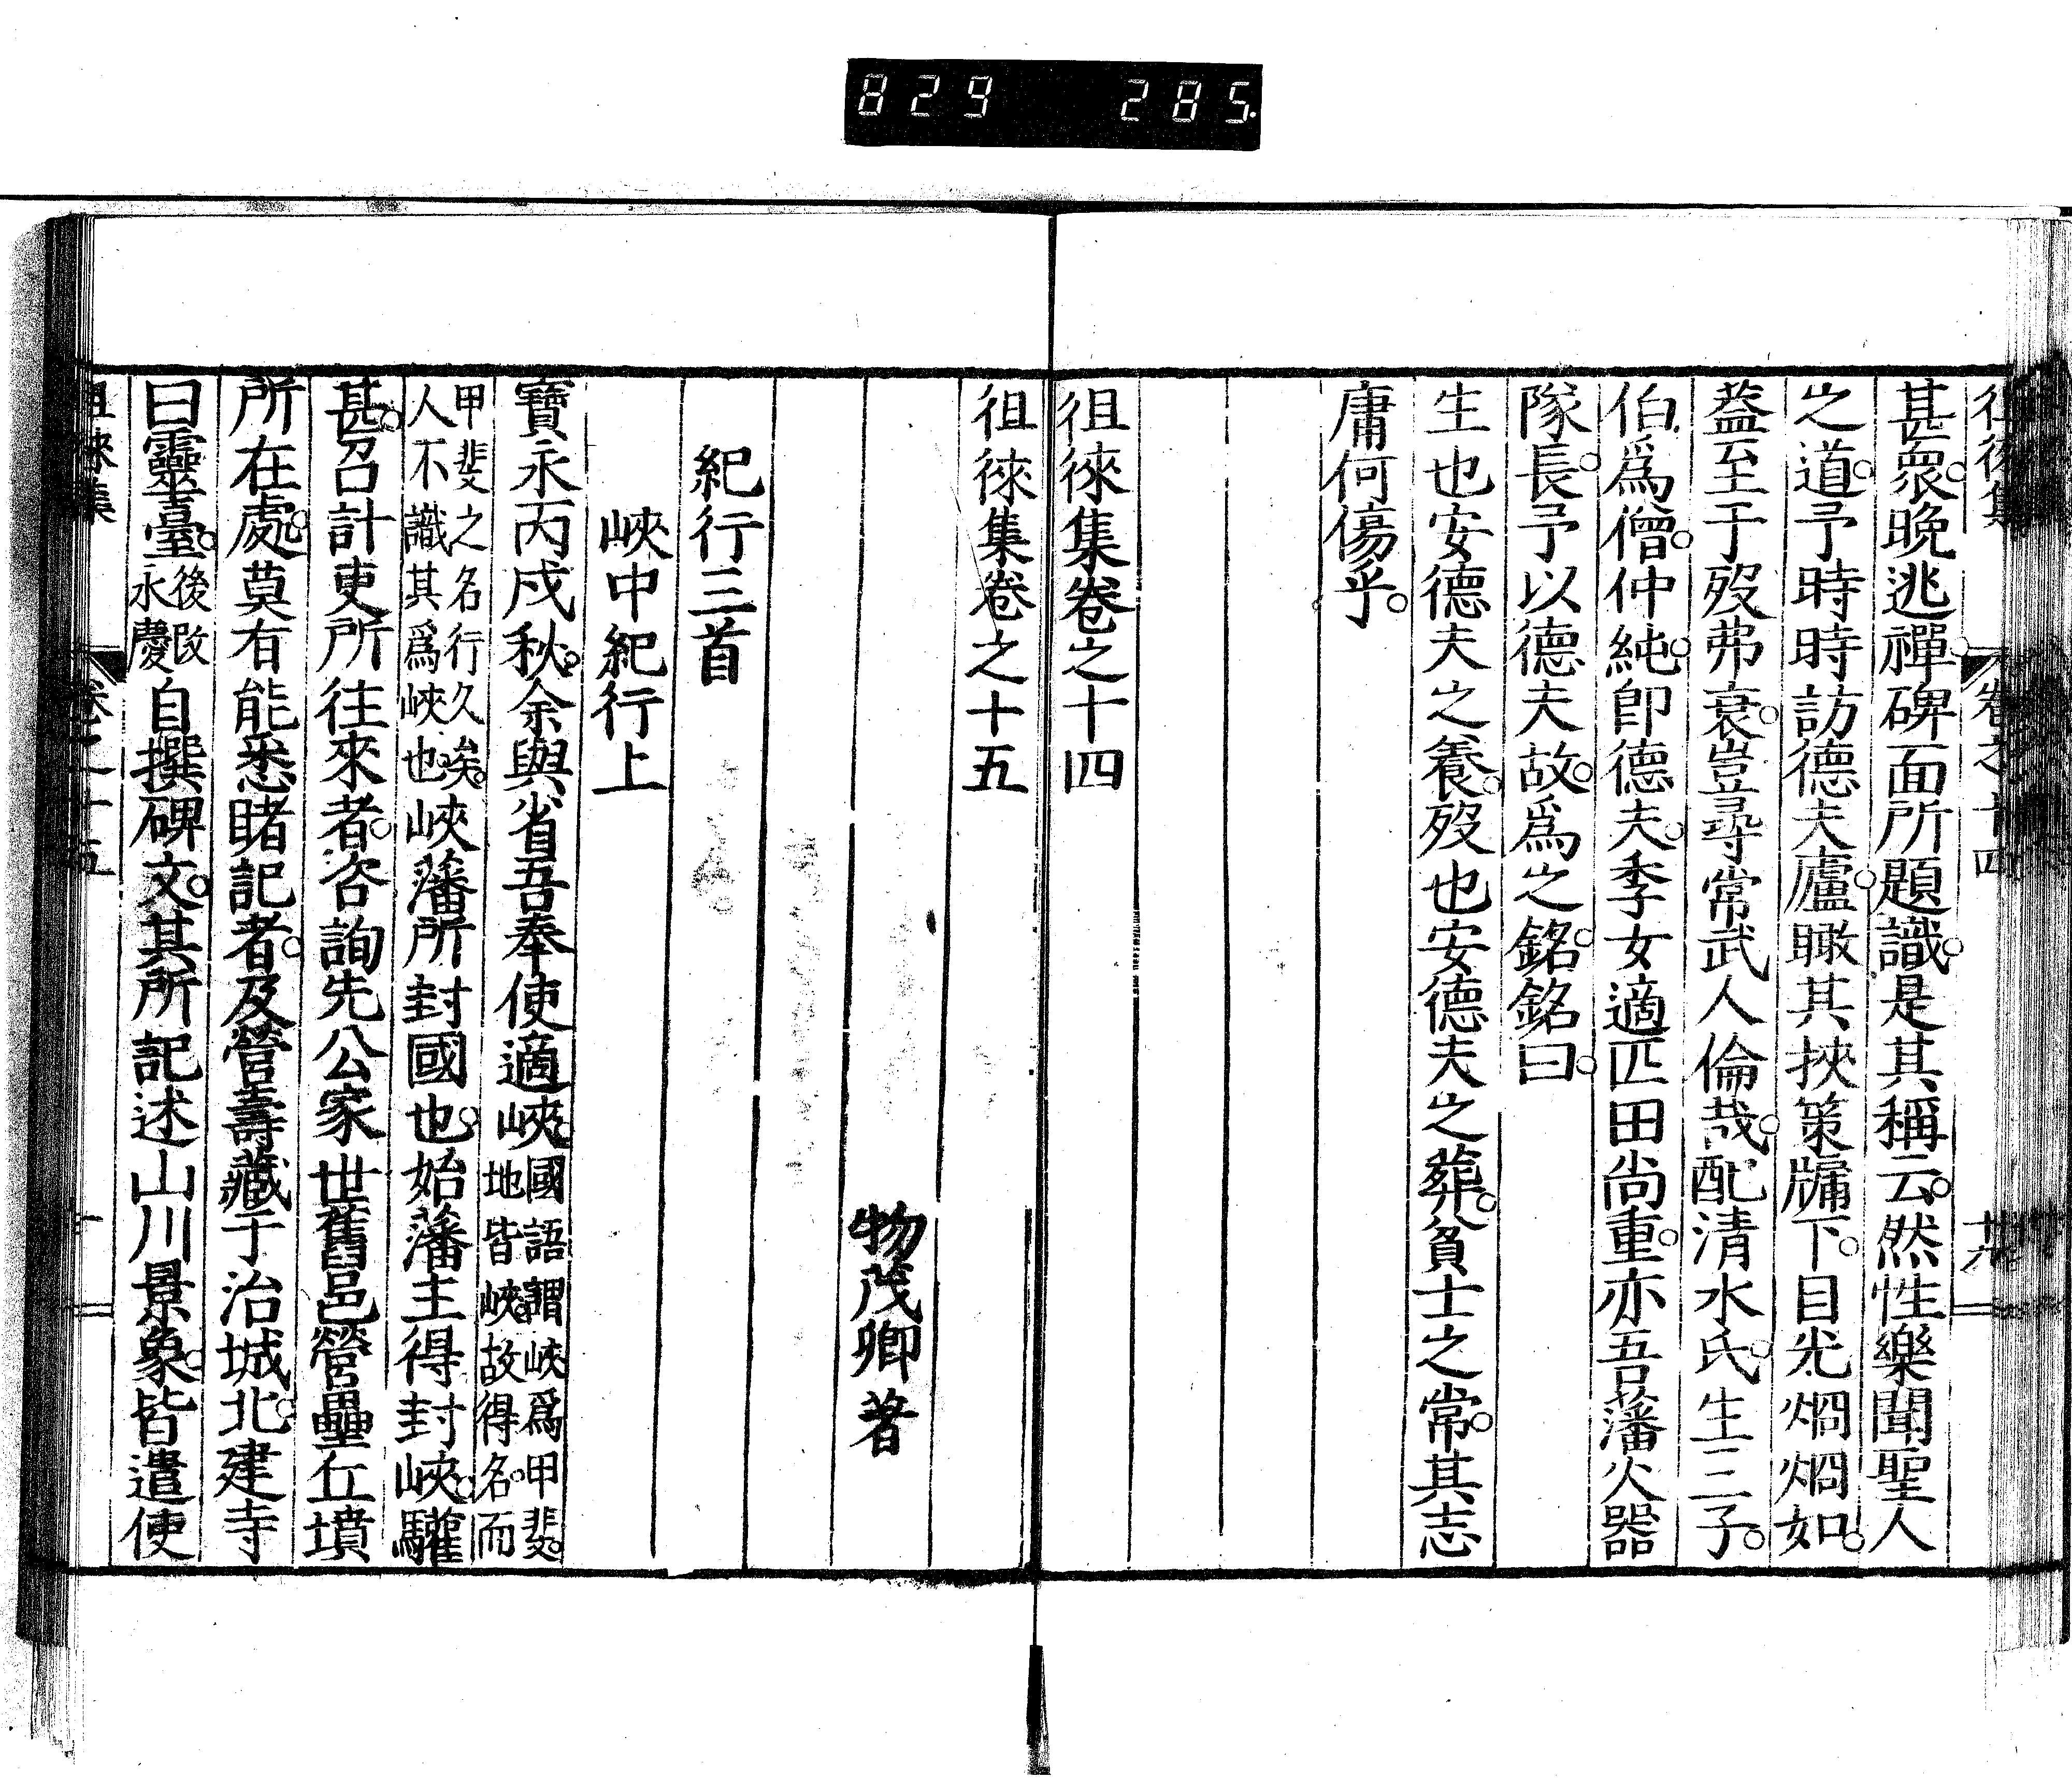 829 285.
徂徠集 卷之十四 廿六
甚裹。晚逃禪。碑面所題識。是其稱云。然性樂聞聖人
之道。予時時訪德夫廬。瞰其挾策牖下。目光烱烱如。
葢至于歿弗衰。豈尋常武人倫哉。配清水氏。生三子。
伯爲僧。仲純。卽德夫。季女適匹田尙重。亦吾藩火器
隊長。予以德夫故。爲之銘。銘曰。
生也安德夫之養。歿也安德夫之葬。貧士之常。其志
庸何傷乎。
徂徠集卷之十四
徂徠集卷之十五
物茂卿著
紀行三首
峽中紀行上
寶永丙戍秋。余與省吾奉使適峽。國語謂峽爲甲斐。
地皆峽。故得名。而
甲斐之名行久矣。
人不識其爲峽也。峽藩所封國也。始藩主得封峽。驩
甚。召計吏所往來者。咨詢先公家世舊邑營壘丘墳
所在處。莫有能悉睹記者。及營壽藏于治城北。建寺
曰靈臺。後改
永慶自撰碑文。其所記述山川景象。皆遣使
徂徠集 卷之十五 一